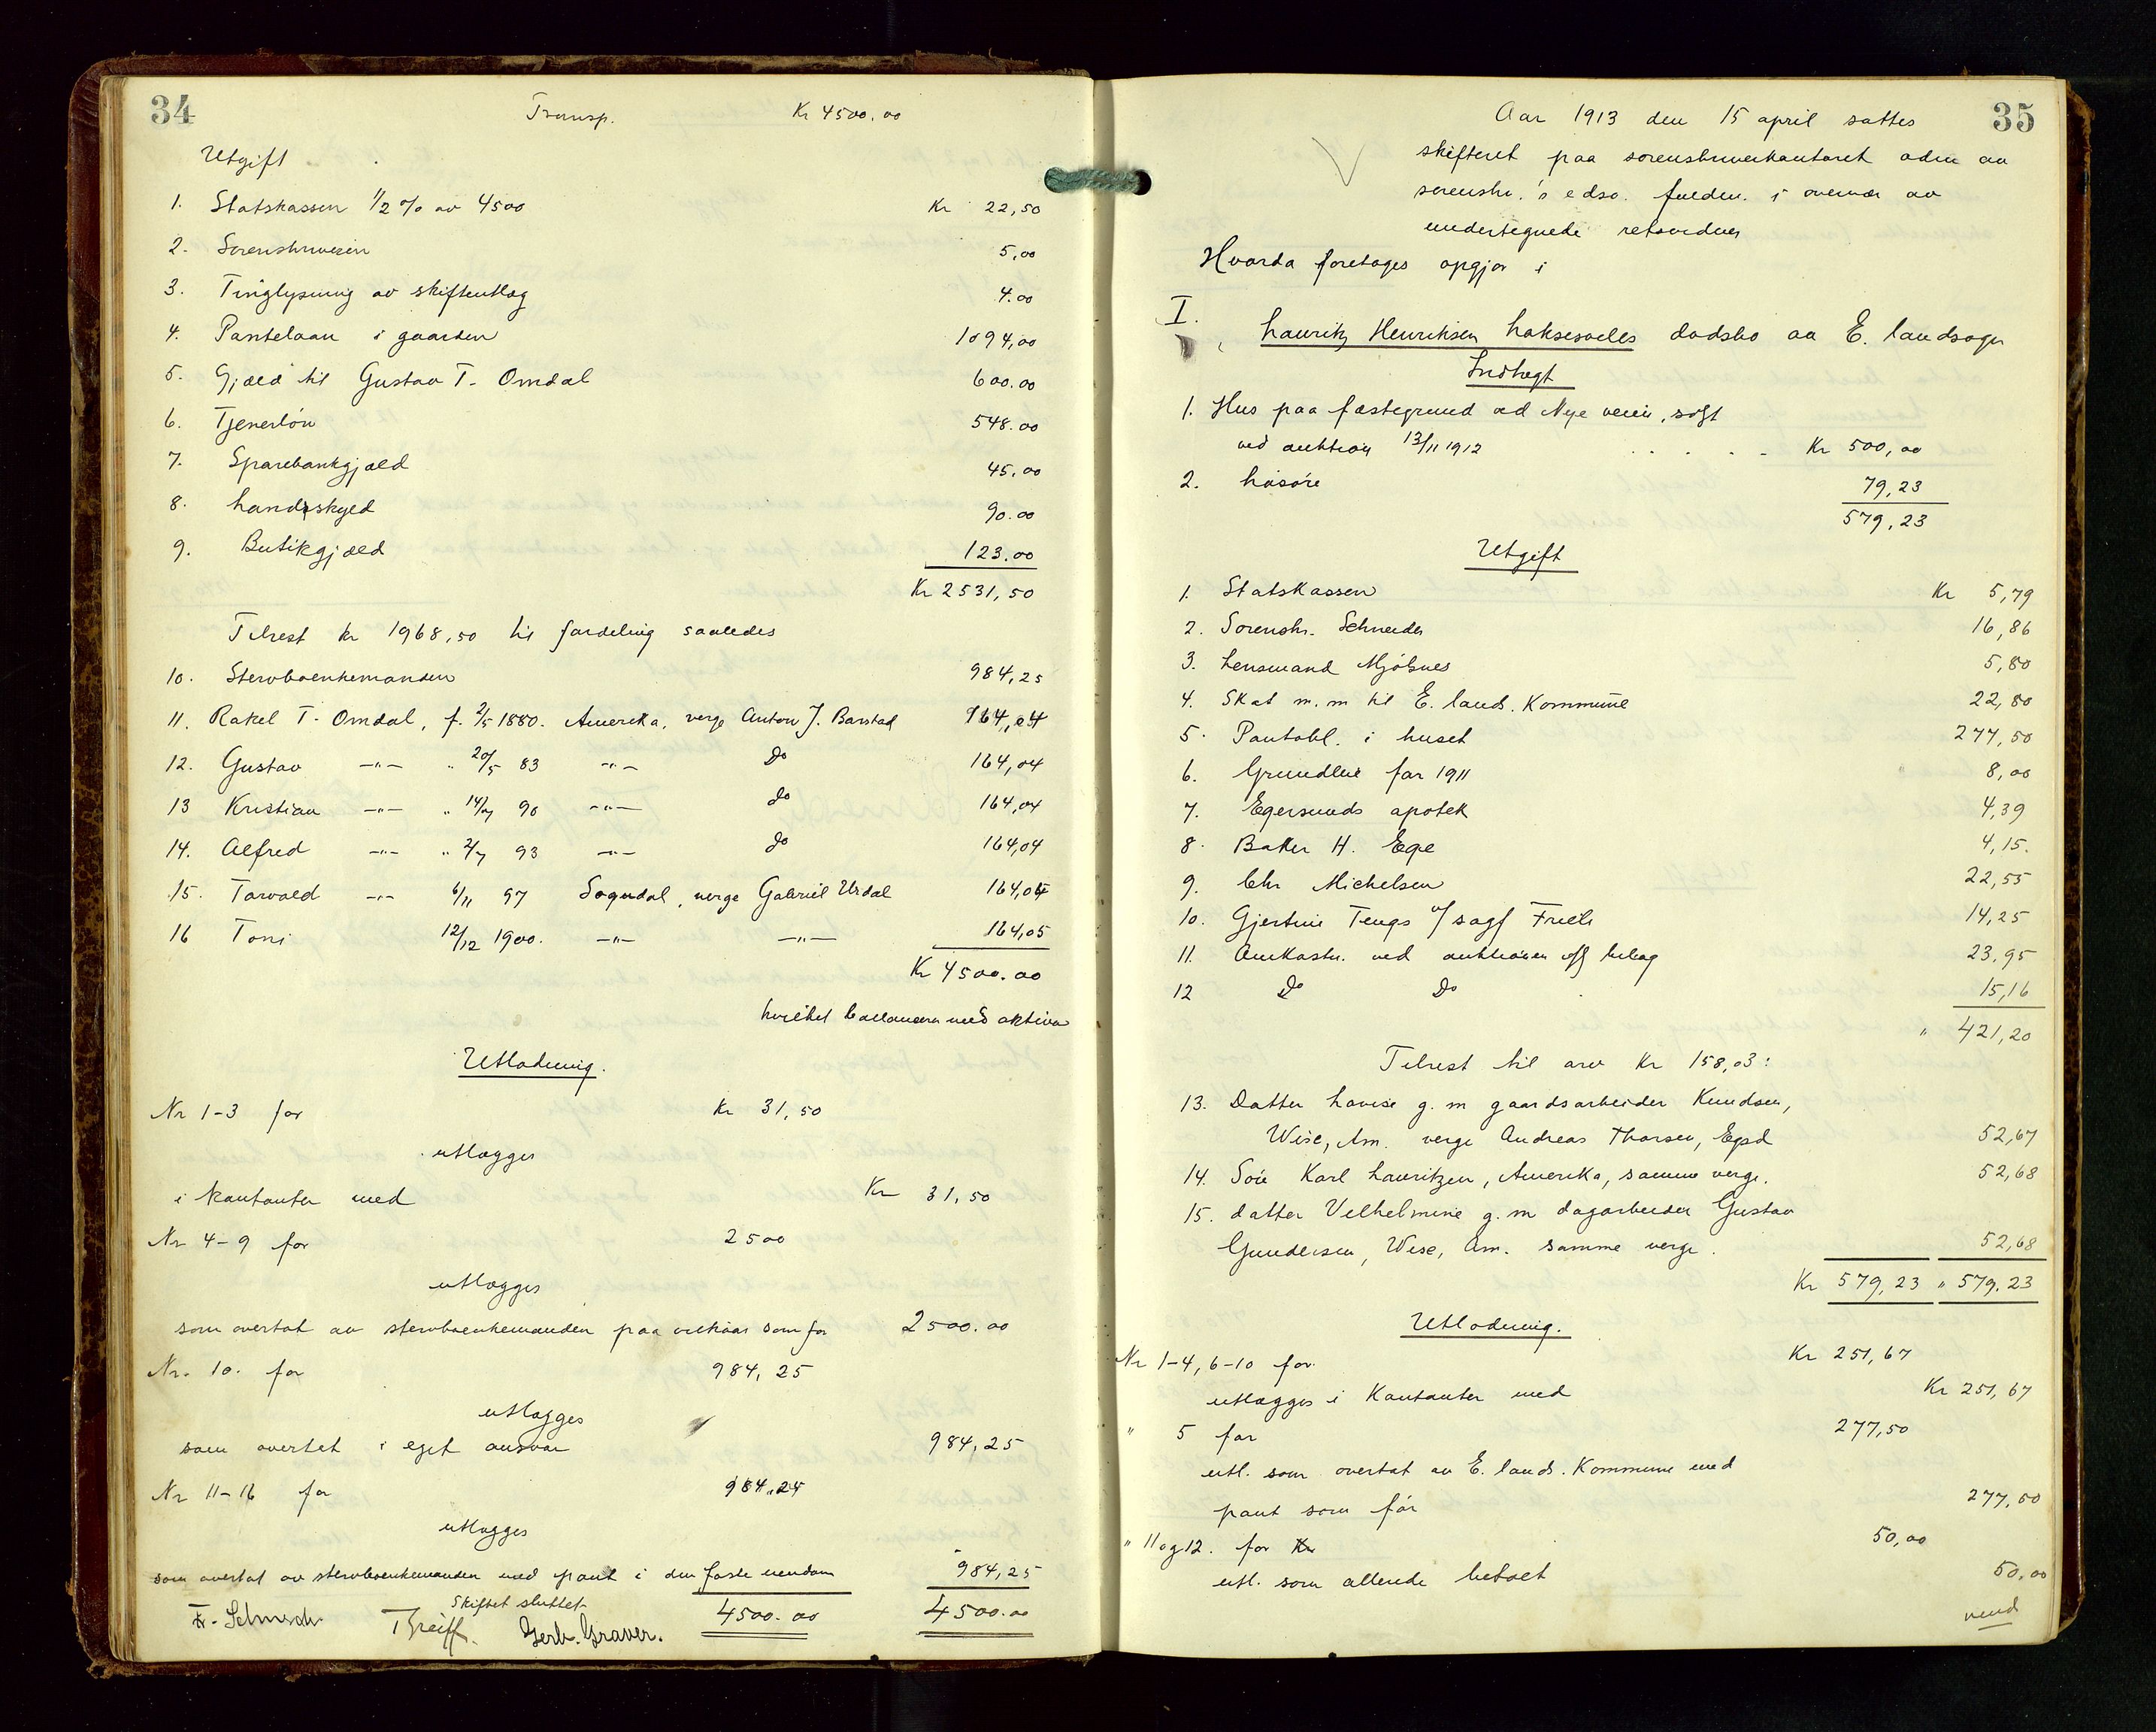 34
Transp. Kr 4500.00
Utgift
1. Statskassen 1/2 % av 4500 Kr 22,50
2. Sorenskriveren 5,00
3. Tinglysning av skifteutlæg 4.00
4. Pantelaan i gaarden 1094,00
5. Gjæld til Gustav T. Omdal 600.00
6. Tjenerløn 548.00
7. Sparebankgjæld 45.00
8. Landskyld 90.00
9. Butikgjæld 123.00
Kr 2531,50
Tilrest kr 1968,50 til fordeling saaledes
10. Stervboenkemanden 984,25
11. Rakel T. Omdal, f. 2/5 1880. Amerika, verge Anton J. Barstad 164,04
12. Gustav -"- " 20/5 83 -"- Do 164,04
13 Kristian -"- " 14/7 90 -"- do 164,04
14. Alfred -"- " 2/7 93 -"- do 164,04
15. Torvald -"- 6/11 97 Sogndal, verge Gabriel Urdal 164,04
16 Toni 12/12 1900. -"- -"- 164,05
Kr 4500.00
hvilket ballancerer med aktiva
Utlodning.
Nr 1-3 for Kr 31,50
utlægges
i kontanter med Kr 31,50
Nr 4-9 for 2500
utlægges
som overtat av stervboenkemanden paa vilkaar som før 2500.00
Nr. 10. for 984,25
utlægges
som overtat i eget ansvar 984,25
Nr 11-16 for 984.24
utlægges
som overtat av stervboenkemanden med pant i den faste eiendom 984,25
Skiftet sluttet 4500.00 4500.00
T Greiff. Gerh. Graver.
35
Aar 1913 den 15 april sattes
skifteret paa sorenskriverkontoret adm av
sorenskr.'s edsv. fuldm. i overvær av
undertegnede retsvidner
Hvorda foretoges opgjør i
I.
Lauritz Henriksen Laksesvelas dødsbo av E. landsogn
Indtægt
1. Hus paa fæstegrund ved Nye veien, solgt
ved auktion 13/11 1912 . . . . . Kr 500,00
2. Løsøre 79,23
579,23
Utgift
1. Statskassen Kr 5,79
2. Sorenskr. Schneider 16,86
3. Lensmand Mjølsnes 5,80
4. Skat m.m til E. lands. Kommune 22,80
5. Pantobl. i huset 277,50
6. Grundleie for 1911 8,00
7. Egersunds apotek 4,39
8. Baker H. Ege 4,15.
9. Chr Michelsen 22,55
10. Gjertine Tengs v/ sagf Friele 14,25
11. Omkostn. ved auktionen iflg bilag 23,95
12 Do Do 15,16
" 421,20
Tilrest til arv Kr 158,03:
13. Datter Lovise g. m gaardsarbeider Knudsen,
Wise, Am. verge Andreas Thorsen, Egsd 52,67
14. Søn Karl Lauritzen, Amerika, samme verge. 52,68
15. datter Vilhelmine g. m dagarbeider Gustav
Gundersen, Wise, Am. samme verge. 52,68
Kr 579,23 " 579,23
Utlodning.
Nr 1-4, 6-10 for Kr 251,67
utlægges i Kontanter med Kr 251,67
" 5 for 277,50
utl. som overtat av E. lands. Kommune med
pant som før 277,50
" 11 og 12. for Kr 50,00
utl. som allerede betalt 50,00
vend